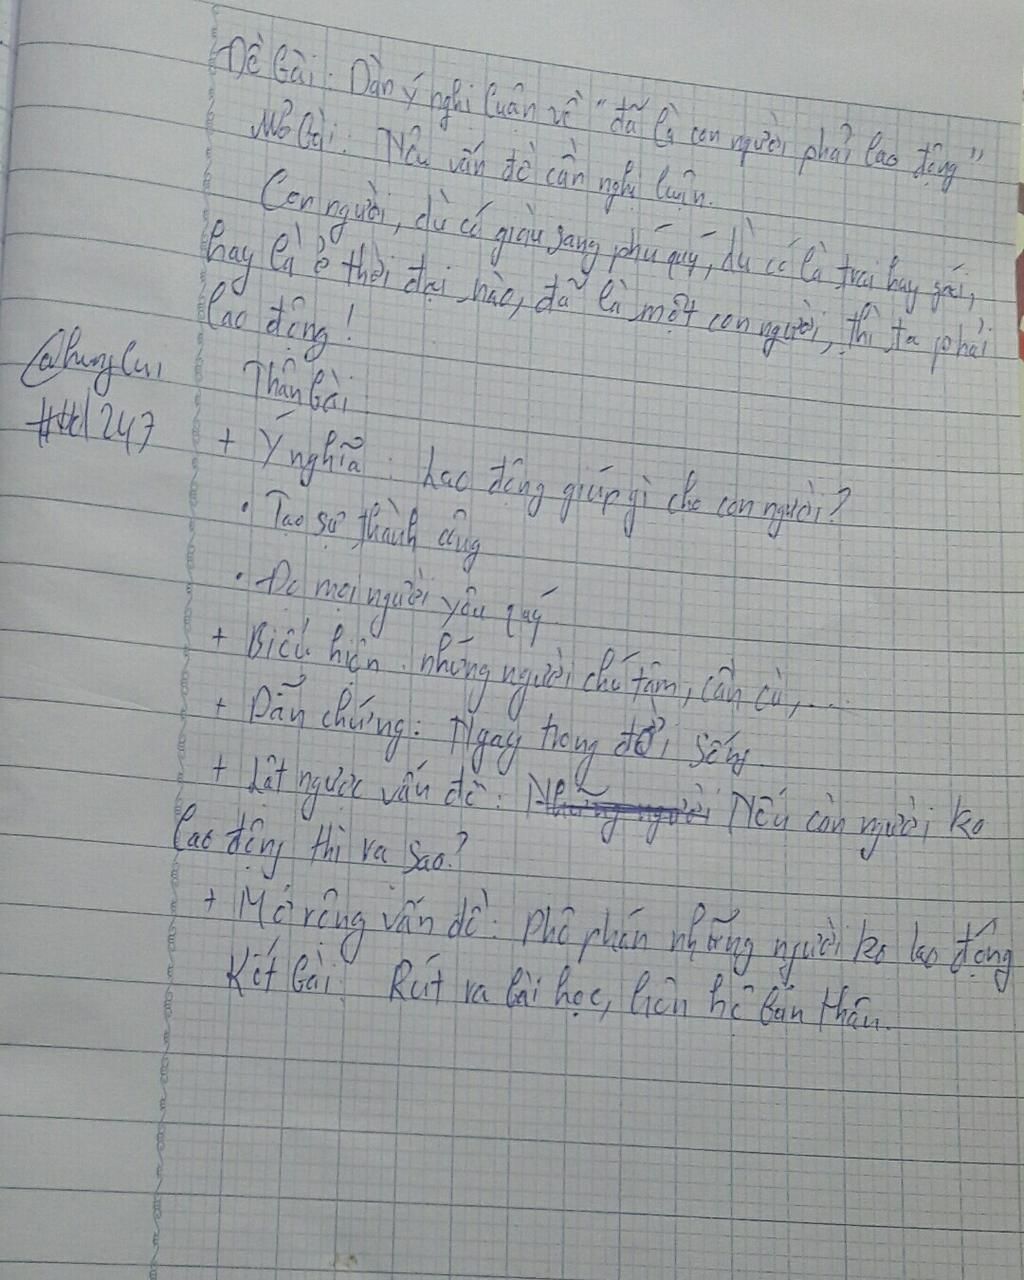 Đề bài: Dàn ý nghị luận về "đã là con người phải lao động"
Mở bài: Nêu vấn đề cần nghị luận.
Con người, dù có giàu sang phú quý, dù có là trai hay gái,
hay là ở thời đại nào, đã là một con người, thì ta phải
lao động!
Thân bài
@hunglui
#td1247
+ Ý nghĩa: Lao động giúp gì cho con người?
• Tạo sự thành công
• Đc mọi người yêu quý
+ Biểu hiện: những người chú tâm, cần cù,...
+ Dẫn chứng: Ngay trong đời sống
+ Lật ngược vấn đề: Những người Nếu con người ko
lao động thì ra sao?
+ Mở rộng vấn đề: Phê phán những người ko lao động
Kết bài: Rút ra bài học, liên hệ bản thân.